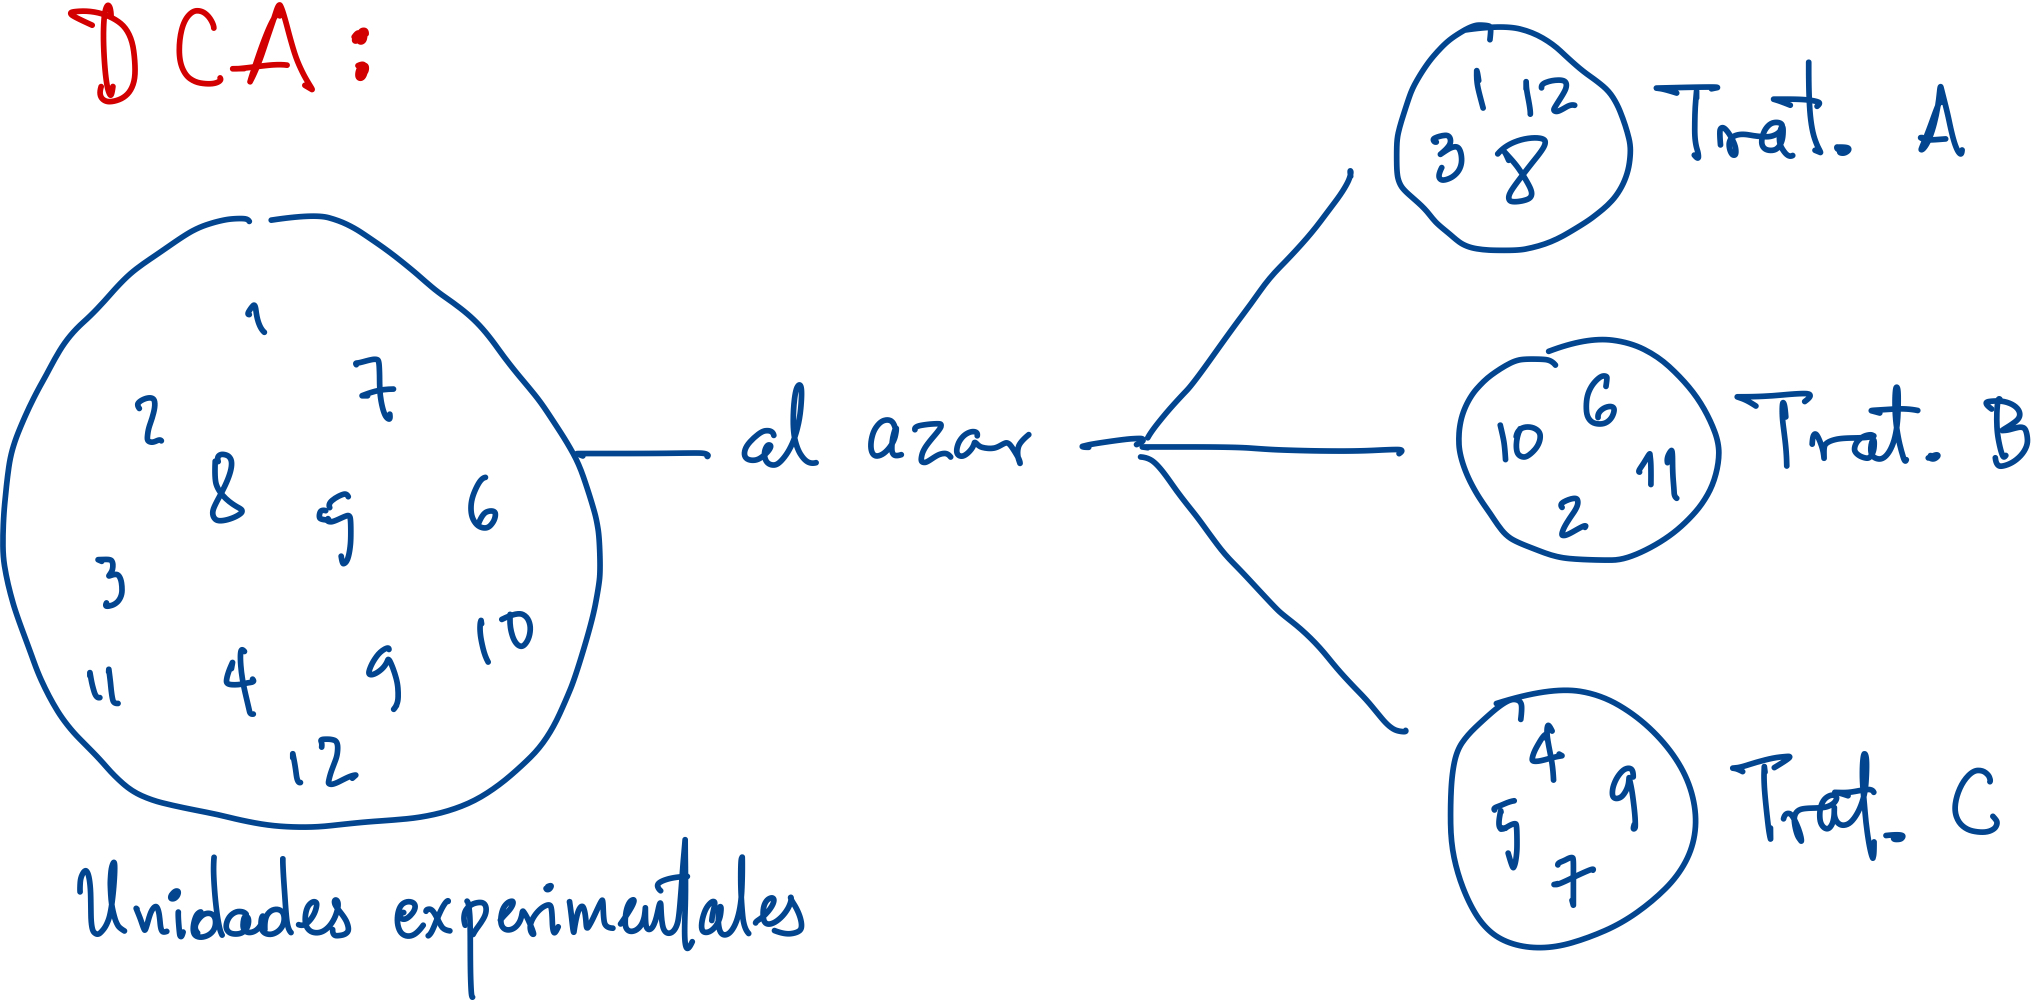 DCA:
1
7
2
8
5
6
3
10
11
4
9
12
Unidades experimentales
al azar
1 12
3 8
Trat. A
6
10
11
2
Trat. B
4
9
5
7
Trat. C